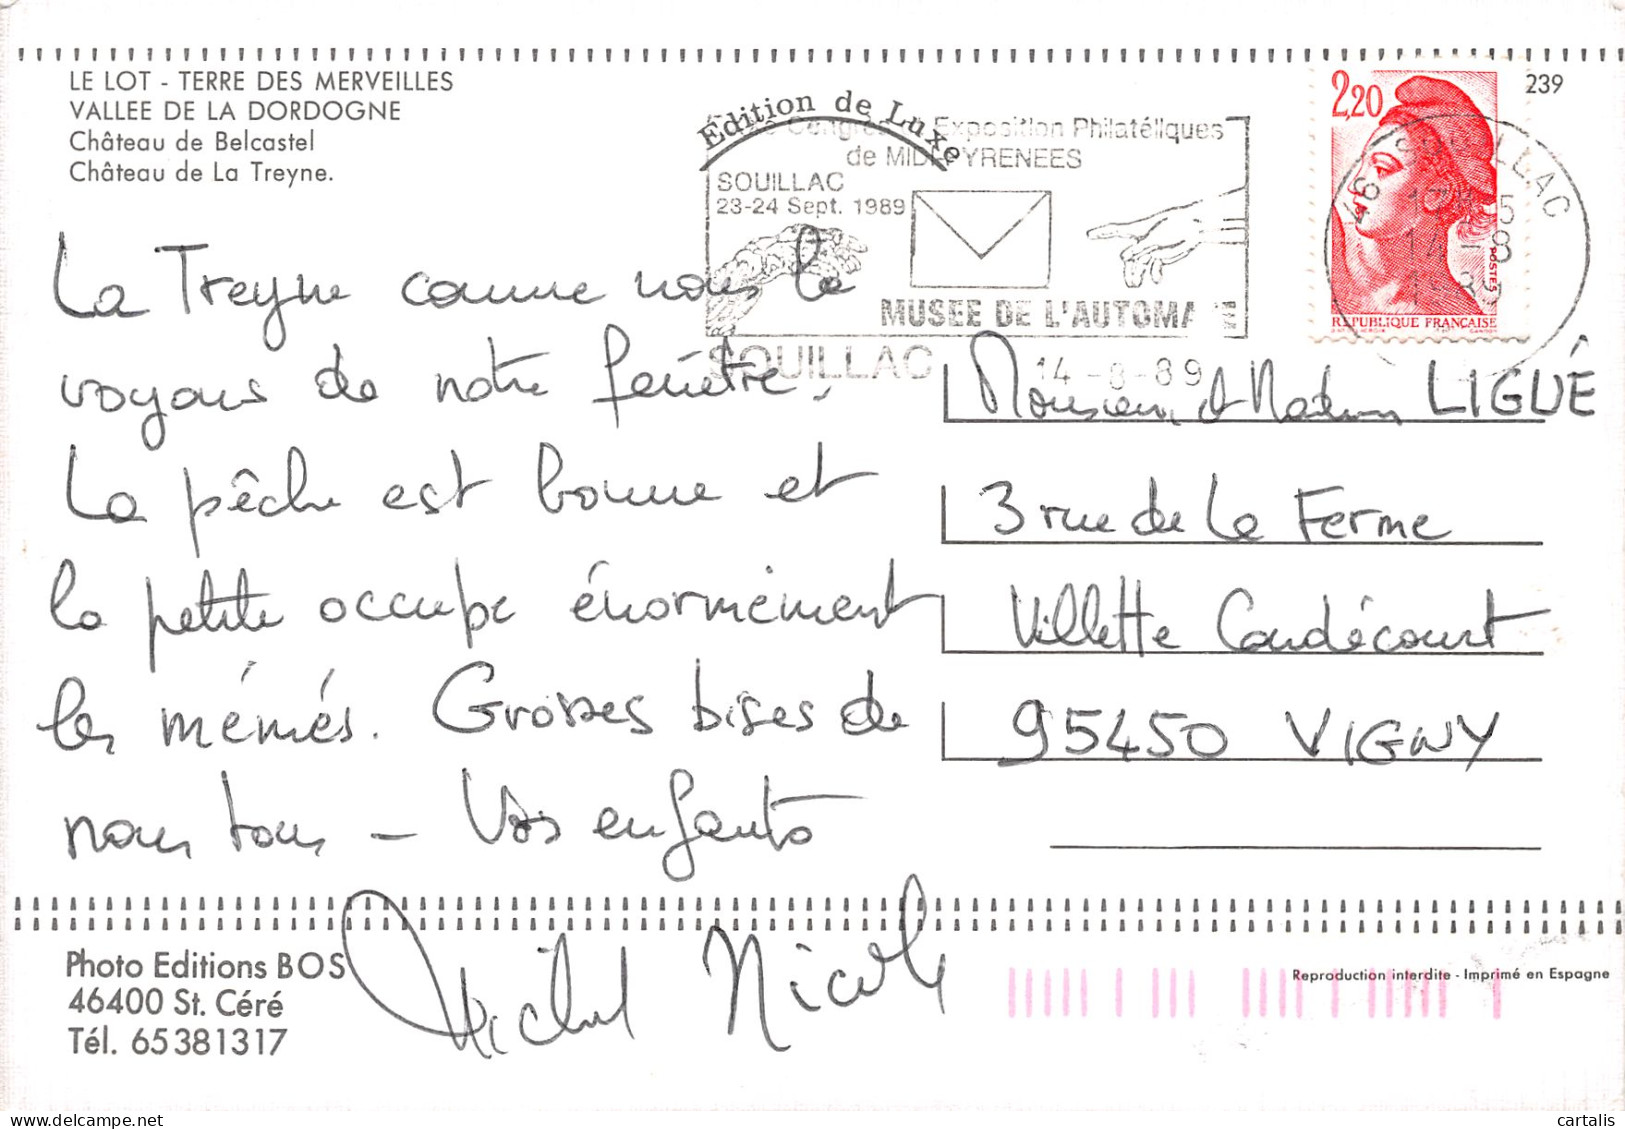 LE LOT - TERRE DES MERVEILLES
VALLEE DE LA DORDOGNE
Château de Belcastel
Château de La Treyne.
239
Edition de Luxe
Exposition Philatéliques
de MIDI PYRENEES
SOUILLAC
23-24 Sept. 1989
MUSEE DE L'AUTOMATE
SOUILLAC
14-8-89
2,20
POSTES
REPUBLIQUE FRANÇAISE
46 SOUILLAC
14-8
1989
La Treyne comme nous la
voyons de notre fenêtre.
La pêche est bonne et
la petite occupe énormément
les mémés. Grosses bises de
nous tous – Vos enfants
Michel Nicole
Monsieur et Madame LIGUÉ
3 rue de la Ferme
Villette Condécourt
95450 VIGNY
Photo Editions BOS
46400 St. Céré
Tél. 65381317
Reproduction interdite - Imprimé en Espagne
cartalis